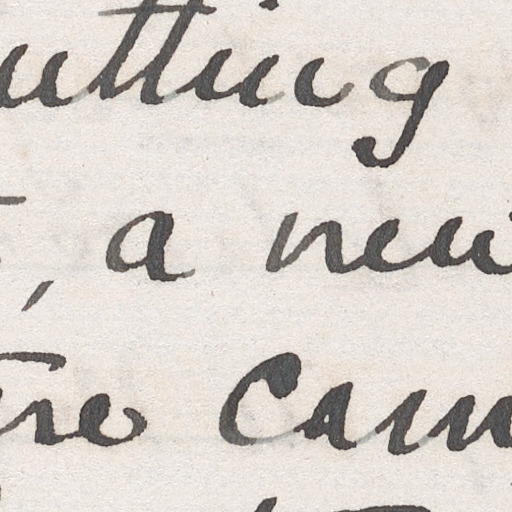 utting
, a new
tre Cam